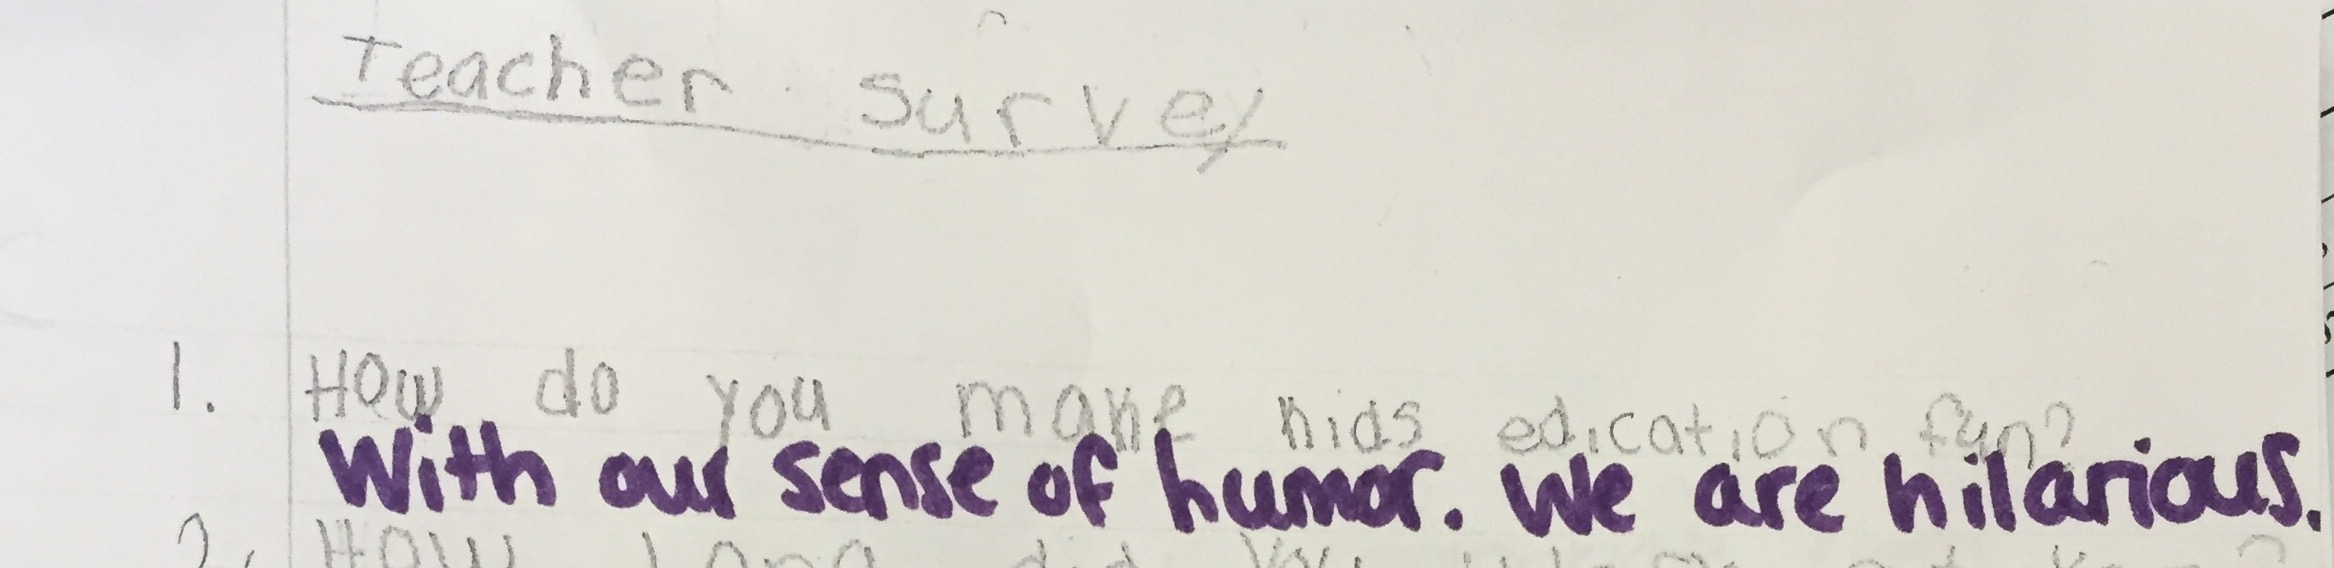 Teacher Survey
1. How do you make kids edication fun?
With our sense of humor. We are hilarious.
2. How long did you